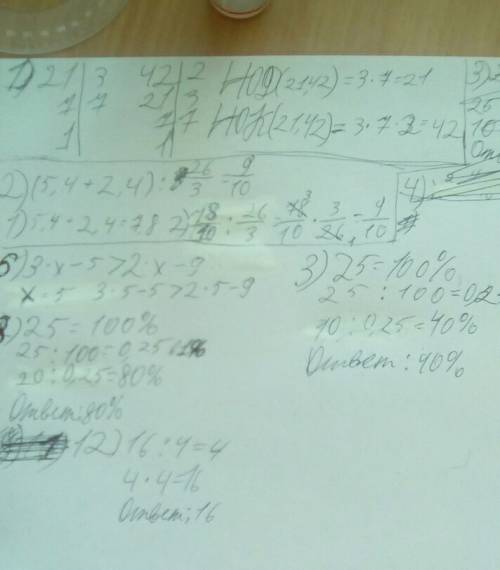 1) 21 | 3 42 | 2 НОД(21,42)=3·7=21
7 | 7 21 | 3
1 7 | 7 НОК(21,42)=3·7·2=42
1
3)
25
10
2) (5,4+2,4) : 26/3 = 9/10
1) 5,4+2,4=7,8 2) 78/10 : 26/3 = 78/10 · 3/26 = 9/10
4)
6) 3·x-5>2·x-9
x=5 3·5-5>2·5-9
3) 25=100%
25:100=0,25
10:0,25=40%
Ответ: 40%
8) 25=100%
25:100=0,25
20:0,25=80%
Ответ: 80%
12) 16:4=4
4·4=16
Ответ: 16